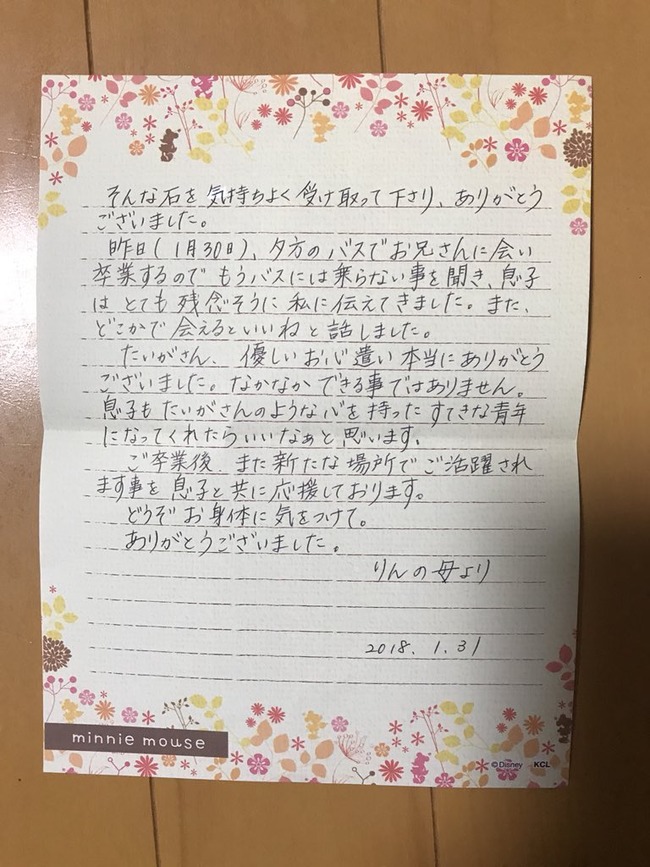 そんな石を気持ちよく受け取って下さり、ありがとう
ございました。
昨日(1月30日)、夕方のバスでお兄さんに会い
卒業するのでもうバスには乗らない事を聞き、息子
はとても残念そうに私に伝えてきました。また、
どこかで会えるといいねと話しました。
たいがさん、優しいお心遣い本当にありがとう
ございました。なかなかできる事ではありません。
息子もたいがさんのような心を持ったすてきな青年
になってくれたらいいなぁと思います。
ご卒業後、また新たな場所でご活躍され
ます事を息子と共に応援しております。
どうぞお身体に気をつけて。
ありがとうございました。
りんの母より
2018.1.31
minnie mouse
©Disney KCL